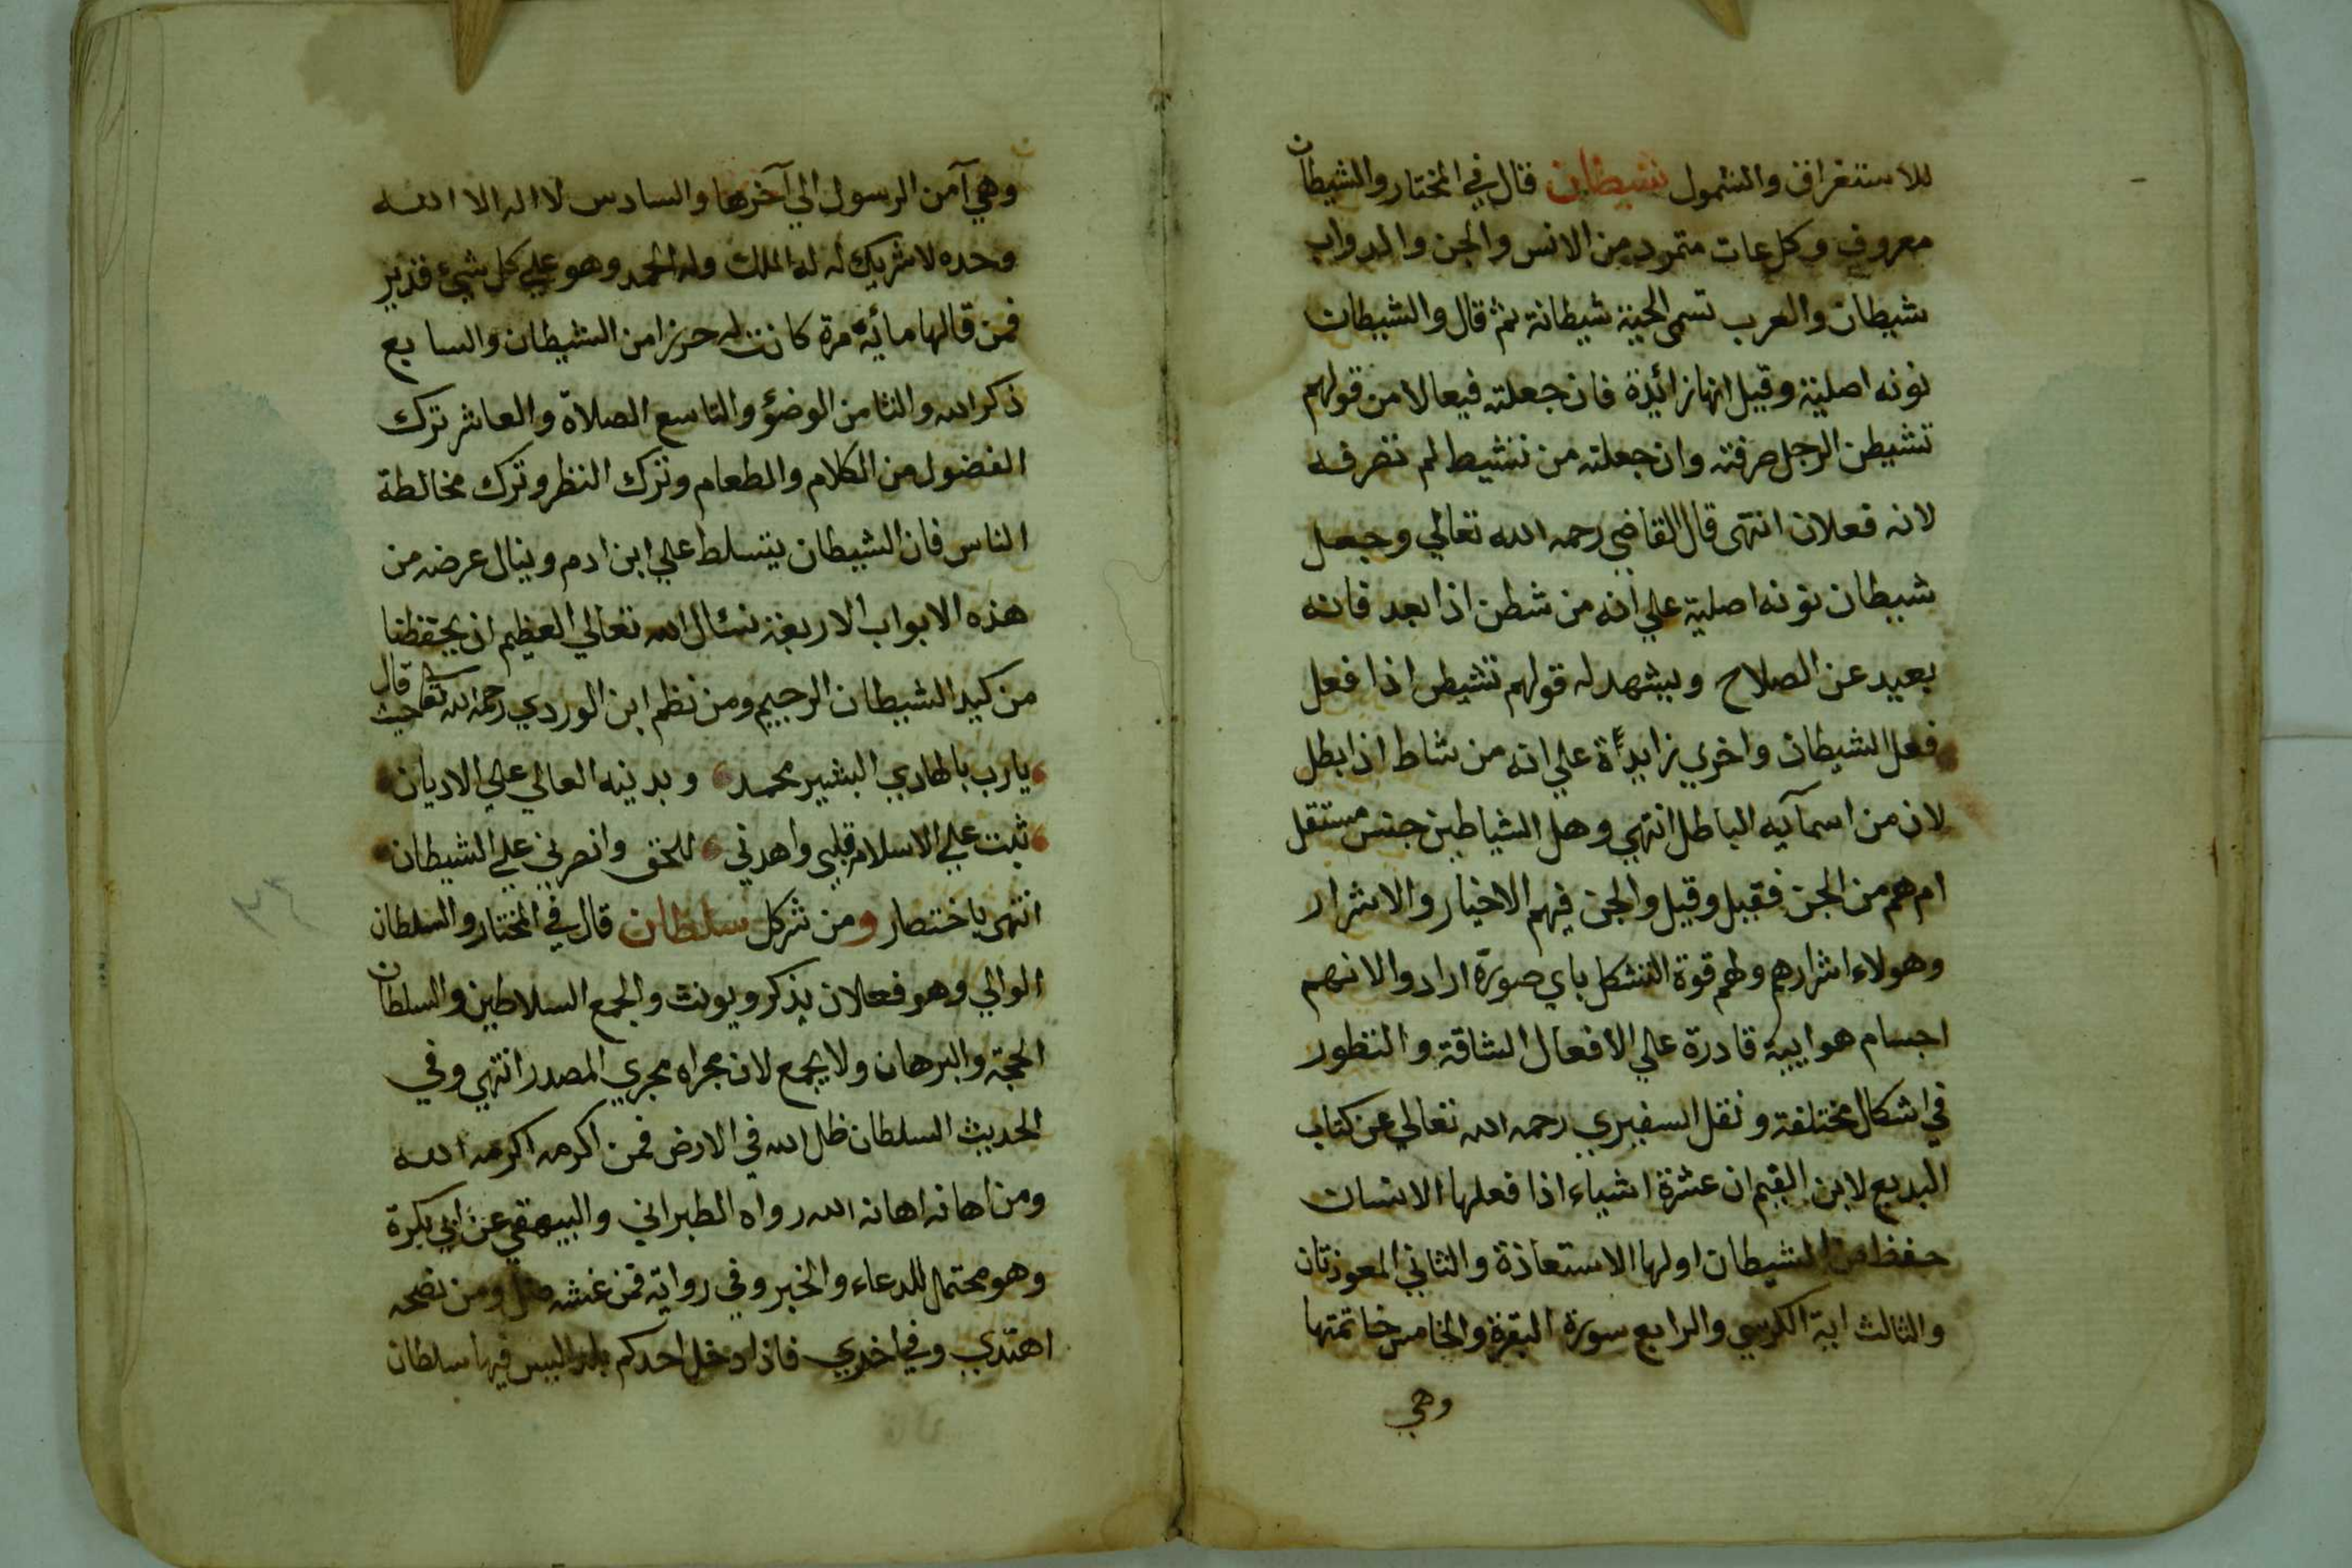 للاستغراق والشمول شيطان قال في المختار والشيطان
معروف وكل عات متمرد من الانس والجن والدواب
شيطان والعرب تسمى الحية شيطانة ثم قال والشيطان
نونه اصلية وقيل انها زائدة فان جعلته فيعالا من قولهم
تشيطن الرجل صرفته وان جعلته من تشيط لم تصرفه
لانه فعلان انتهى قال القاضي رحمه الله تعالي وجعل
شيطان نونه اصلية علي انه من شطن اذا بعد فانه
بعيد عن الصلاح ويشهد له قولهم تشيطن اذا فعل
فعل الشيطان واخري زايدءة علي انه من شاط اذا بطل
لان من اسمآيه الباطل انتهي وهل الشياطين جنس مستقل
ام هم من الجن فقيل وقيل والجن فيهم الاخيار والاشرار
وهولاء اشرارهم ولهم قوة التشكل باي صورة ارادوا لانهم
اجسام هواييية قادرة علي الافعال الشاقة والتطور
في اشكال مختلفة ونقل السفيري رحمه الله تعالي عن كتاب
البديع لابن القيم ان عشرة اشياء اذا فعلها الانسان
حفظ من الشيطان اولها الاستعاذة والثاني المعوذتان
والثالث اية الكرسي والرابع سورة البقرة والخامس خاتمتها
وهي
وهي آمن الرسول الي آخرها والسادس لا اله الا الله
وحده لا شريك له له الملك وله الحمد وهو علي كل شيء قدير
فمن قالها مائة مرة كانت له حرزا من الشيطان والسابع
ذكر الله والثامن الوضؤ والتاسع الصلاة والعاشر ترك
الفضول من الكلام والطعام وترك النظر وترك مخالطة
الناس فان الشيطان يتسلط علي ابن ادم وينال عرضه من
هذه الابواب الاربعة نسئال الله تعالي العظيم ان يحفظنا
من كيد الشيطان الرجيم ومن نظم ابن الوردي رحمه الله تعالى حيث قال
يا رب بالهادي البشير محمد وبدينه العالي علي الاديان
ثبت علي الاسلام قلبي واهدني للحق وانصرني علي الشيطان
انتهى باختصار ومن شر كل سلطان قال في المختار والسلطان
الوالي وهو فعلان يذكر ويونث والجمع السلاطين والسلطان
الحجة والبرهان ولا يجمع لان مجراه مجري المصدر انتهي وفي
الحديث السلطان ظل الله في الارض فمن اكرمه اكرمه الله
ومن اهانه اهانه الله رواه الطبراني والبيهقي عن ابي بكرة
وهو محتمل للدعاء والخبر وفي رواية فمن غشه ضل ومن نصحه
اهتدي وفي اخري فاذا دخل احدكم بلدا ليس فيها سلطان